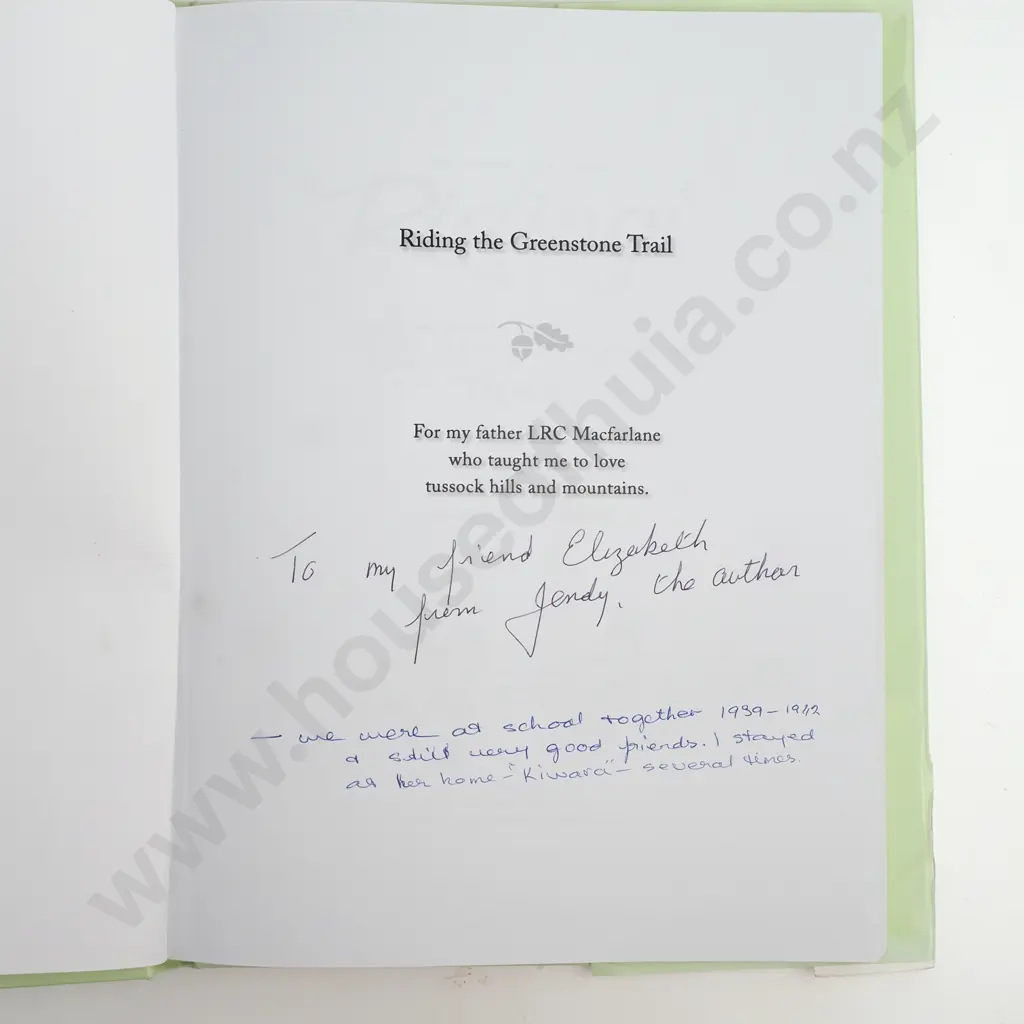 Riding the Greenstone Trail
For my father LRC Macfarlane
who taught me to love
tussock hills and mountains.
To my friend Elizabeth
from Jendy, the author
— we were at school together 1939-1942
& still very good friends. I stayed
at her home - "Kiwara" - several times.
www.houseofhuia.co.nz